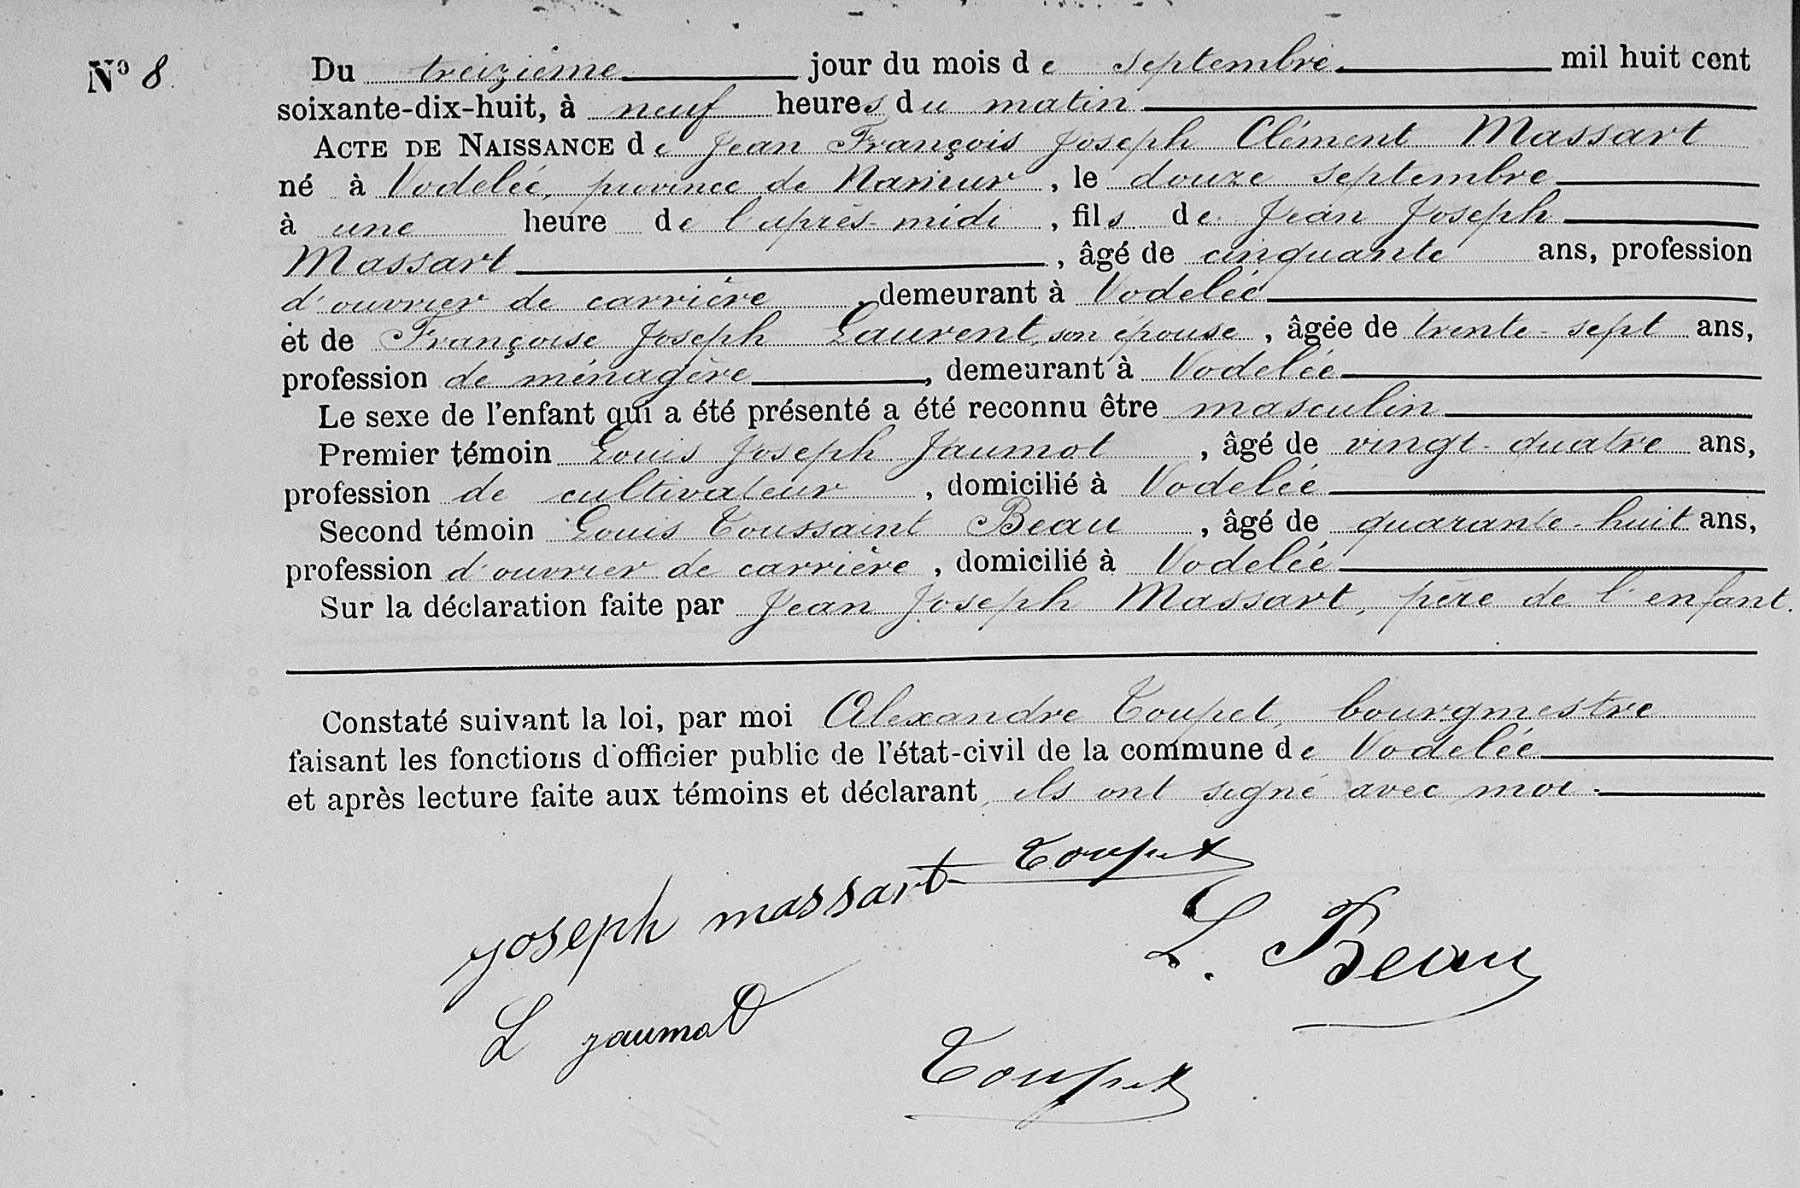 N° 8. Du treizième jour du mois de septembre mil huit cent
soixante-dix-huit, à neuf heures du matin
ACTE DE NAISSANCE de Jean François Joseph Clément Massart
né à Vodelée, province de Namur, le douze septembre
à une heure de l'après-midi, fils de Jean Joseph
Massart, âgé de cinquante ans, profession
d'ouvrier de carrière, demeurant à Vodelée
et de Françoise Joseph Laurent, son épouse, âgée de trente-sept ans,
profession de ménagère, demeurant à Vodelée
Le sexe de l'enfant qui a été présenté a été reconnu être masculin
Premier témoin Louis Joseph Jaumot, âgé de vingt-quatre ans,
profession de cultivateur, domicilié à Vodelée
Second témoin Louis Toussaint Beau, âgé de quarante-huit ans,
profession d'ouvrier de carrière, domicilié à Vodelée
Sur la déclaration faite par Jean Joseph Massart, père de l'enfant.
Constaté suivant la loi, par moi Alexandre Toupet, bourgmestre
faisant les fonctions d'officier public de l'état-civil de la commune de Vodelée
et après lecture faite aux témoins et déclarant, ils ont signé avec moi.
Toupet
joseph massart
L. Beau
L jaumot
Toupet